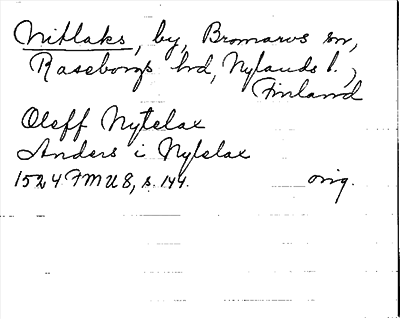 Nitlaks, by, Bromarvs sn,
Raseborgs hd, Nylands l.,
Finland
Oleff Nytelax
Anders i Nytelax
1524 FMU 8, s. 144. orig.